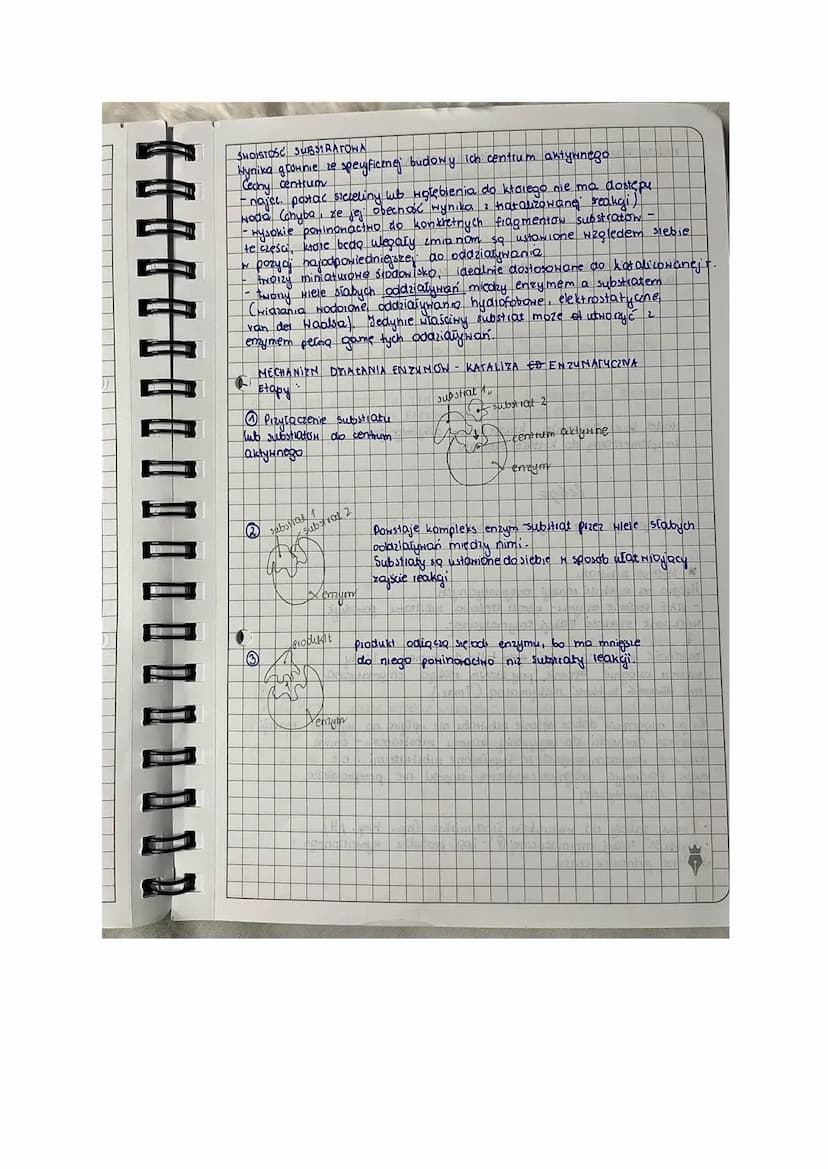 SWOISTOŚĆ SUBSTRATOWA
Wynika głównie ze specyficznej budowy ich centrum aktywnego
Cechy centrum
- najcz. postać szczeliny lub wgłębienia do którego nie ma dostępu
woda (chyba, że jej obecność wynika z katalizowanej reakcji)
- wysokie powinonactwo do konkretnych fragmentów substratów -
te części, które będą ulegały zmianom są ustawione względem siebie
w pozycji najodpowiedniejszej do oddziaływania
- tworzy miniaturowe środowisko, idealnie dostosowane do katalizowanej r.
- tworzy wiele słabych oddziaływań między enzymem a substratem
(wiązania wodorowe, oddziaływania hydrofobowe, elektrostatyczne,
van der Waalsa). Jedynie właściwy substrat może utworzyć z
enzymem pełną gamę tych oddziaływań.
MECHANIZM DZIAŁANIA ENZYMÓW - KATALIZA ENZYMATYCZNA
Etapy:
substrat 1
substrat 2
① Przyłączenie substratu
lub substratów do centrum
aktywnego
centrum aktywne
enzym
②
substrat 1
substrat 2
enzym
Powstaje kompleks enzym-substrat przez wiele słabych
oddziaływań między nimi.
Substraty są ustawione do siebie w sposób ułatwiający
zajście reakcji
③
produkt
enzym
Produkt odłącza się od enzymu, bo ma mniejsze
do niego powinonactwo niż substraty reakcji.